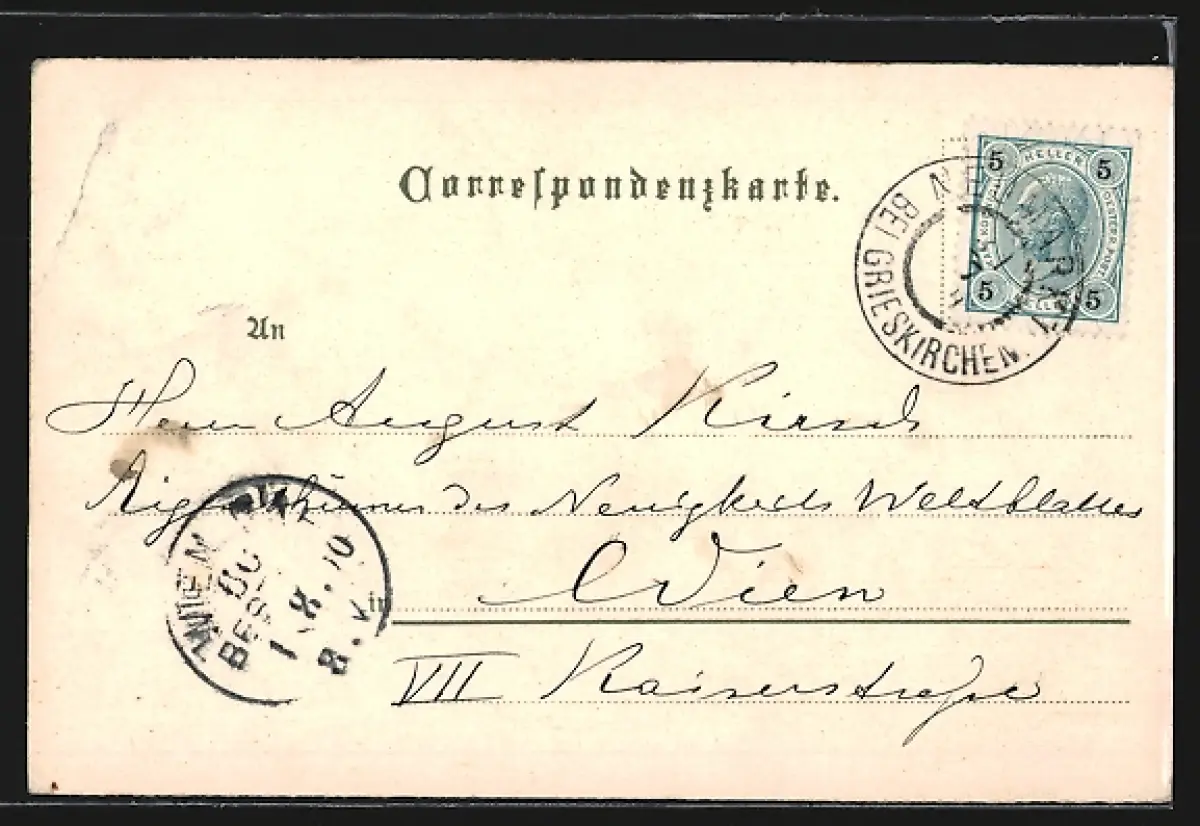 Correspondenzkarte.
5 HELLER 5
5 HELLER 5
BEI GRIESKIRCHEN
An
Herrn August Kirsch
Eigenthümer des Neuigkeits Weltblattes
in Wien
VII Kaiserstraße
WIEN
BESTELLT
1.X.00
8.V